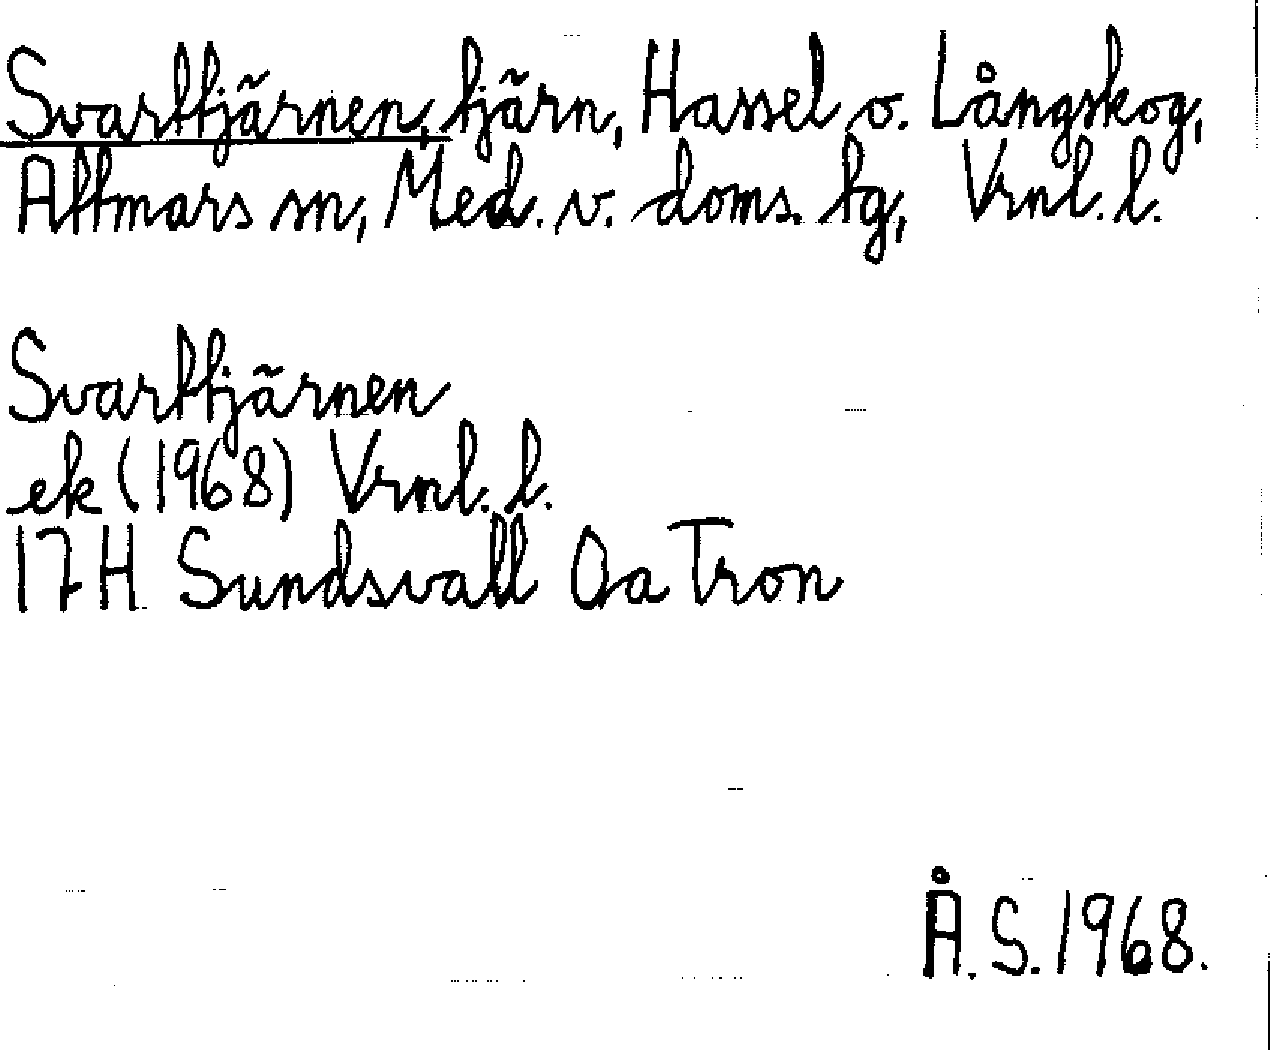 Svarttjärnen, tjärn, Hassel o. Långskog,
Attmars sn, Med. v. doms. tg, Vrnl. l.
Svarttjärnen
ek (1968) Vrnl. l.
17H Sundsvall Oa Tron
Å.S. 1968.